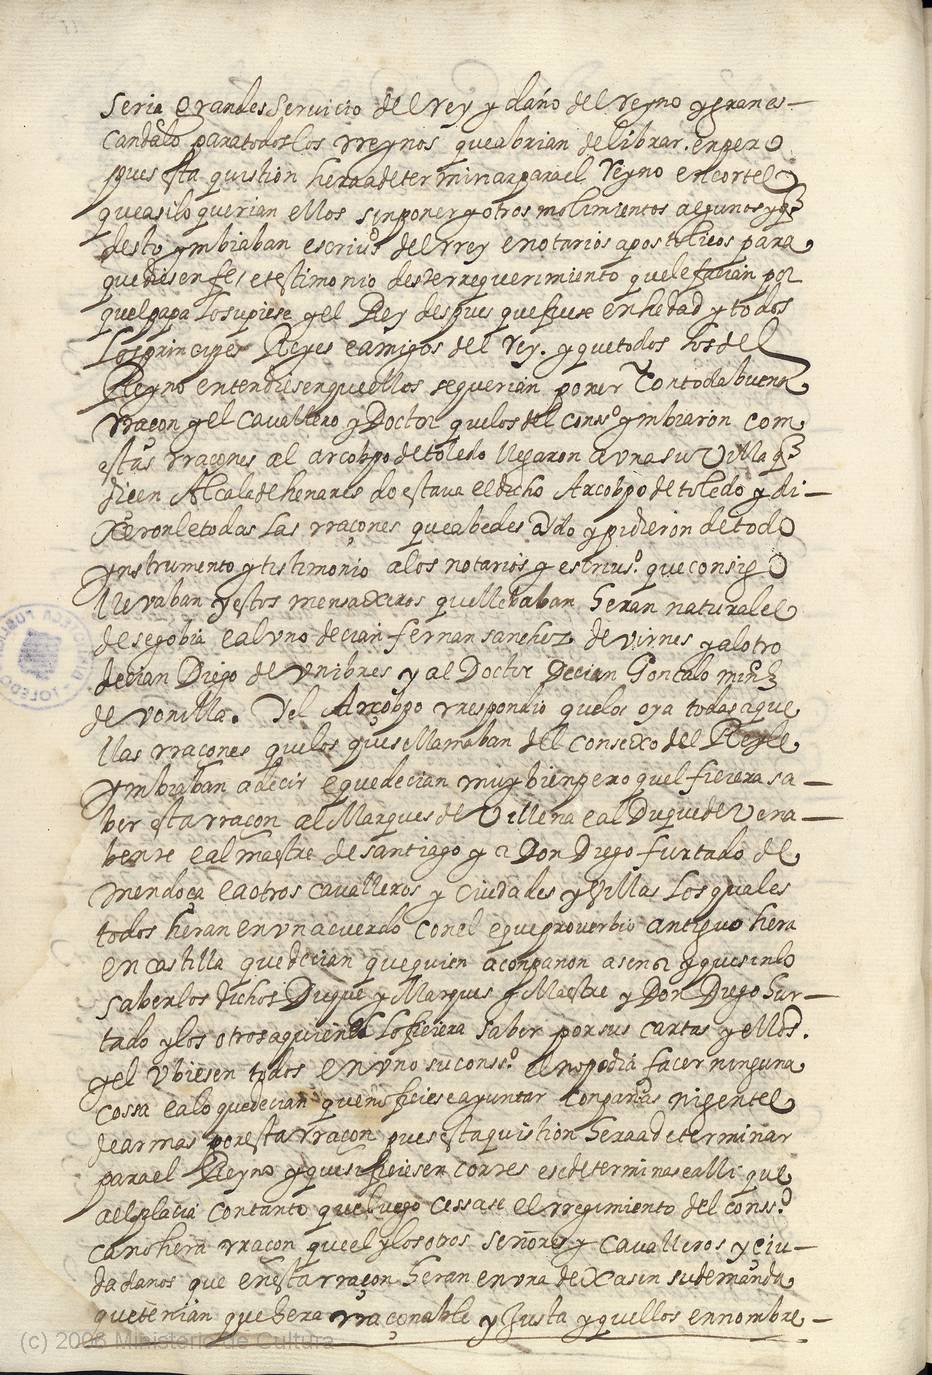 seria grandes servicio del rey y daño del reyno y gran es-
candalo para todos los rreynos que abrian de librar, enpero
pues esta quistion hera a determinar para el Reyno en cortes
que asi lo querian ellos sin poner y otros molimientos algunos y q̃
desto ymbiaban escriuos del rrey e notarios apostolicos para
que diesen fe, e testimonio deste rrequerimiento que le façian por
quel papa lo supiese y el Rey despues que fuese en hedad y todos
Los principes Reyes e amigos del rey. y que todos los del
Reyno entendiesen que ellos se querian poner con toda buena
rraçon y el cavallero y Doctor que los del conso ymbiaron com
estas rraçones al arcobpo de toledo llegaron a vna su Villa q̃
diçen Alcala de henares do estava el dicho Arcobpo de toledo y di-
xeronle todas las rraçones que abedes oydo y pidieron de todo
ynstrumento y tistimonio a los notarios y escrius.o que consigo
llevaban y estos mensaxeros que llebaban heran naturales
de segobia e al vno decian fernan sanchez de virnes y al otro
decian Diego de vnibres y al Doctor Decian Gonçalo minz
de vonilla. Y el Arcobpo rrespondio que los oya todas aque
llas rraçones que los que se llamaban del consexo del Rey le
ymbiaban a decir e que decian muy bien pero quel ficiera sa-
ber esta rraçon al Marques de Villena e al Duque de Vena-
bente e al maestre de santiago y a Don Diego furtado de
mendoça e a otros cavalleros y Ciudades y Villas Los quales
todos heran en vn acuerdo con el e que proverbio antiguo hera
en castilla que decian que quien aconpañon asenor y que sin lo
saber los dichos Duque y Marques y Maestre y Don Diego hur-
tado y los otros a quien el lo ficiera saber por sus cartas y ellos.
y el vbiesen todos en vno su conss.o el no podia facer ninguna
cossa e a lo que decian que no ficiese ayuntar conpañas ni gentes
de armas por esta rraçon pues esta quistion hera a determinar
para el Reyno y que si ficiesen cortes e se determinase alli que
a el placia con tanto que luego cessase el rregimiento del conss.o
ca no hera rraçon que el y los otros señores y Cavalleros y çiu-
dadanos que en esta rraçon heran en vna dexasin su demanda
que tenian que hera rraçonable y Justa y quellos en nombre-
(c) 2006 Ministerio de Cultura